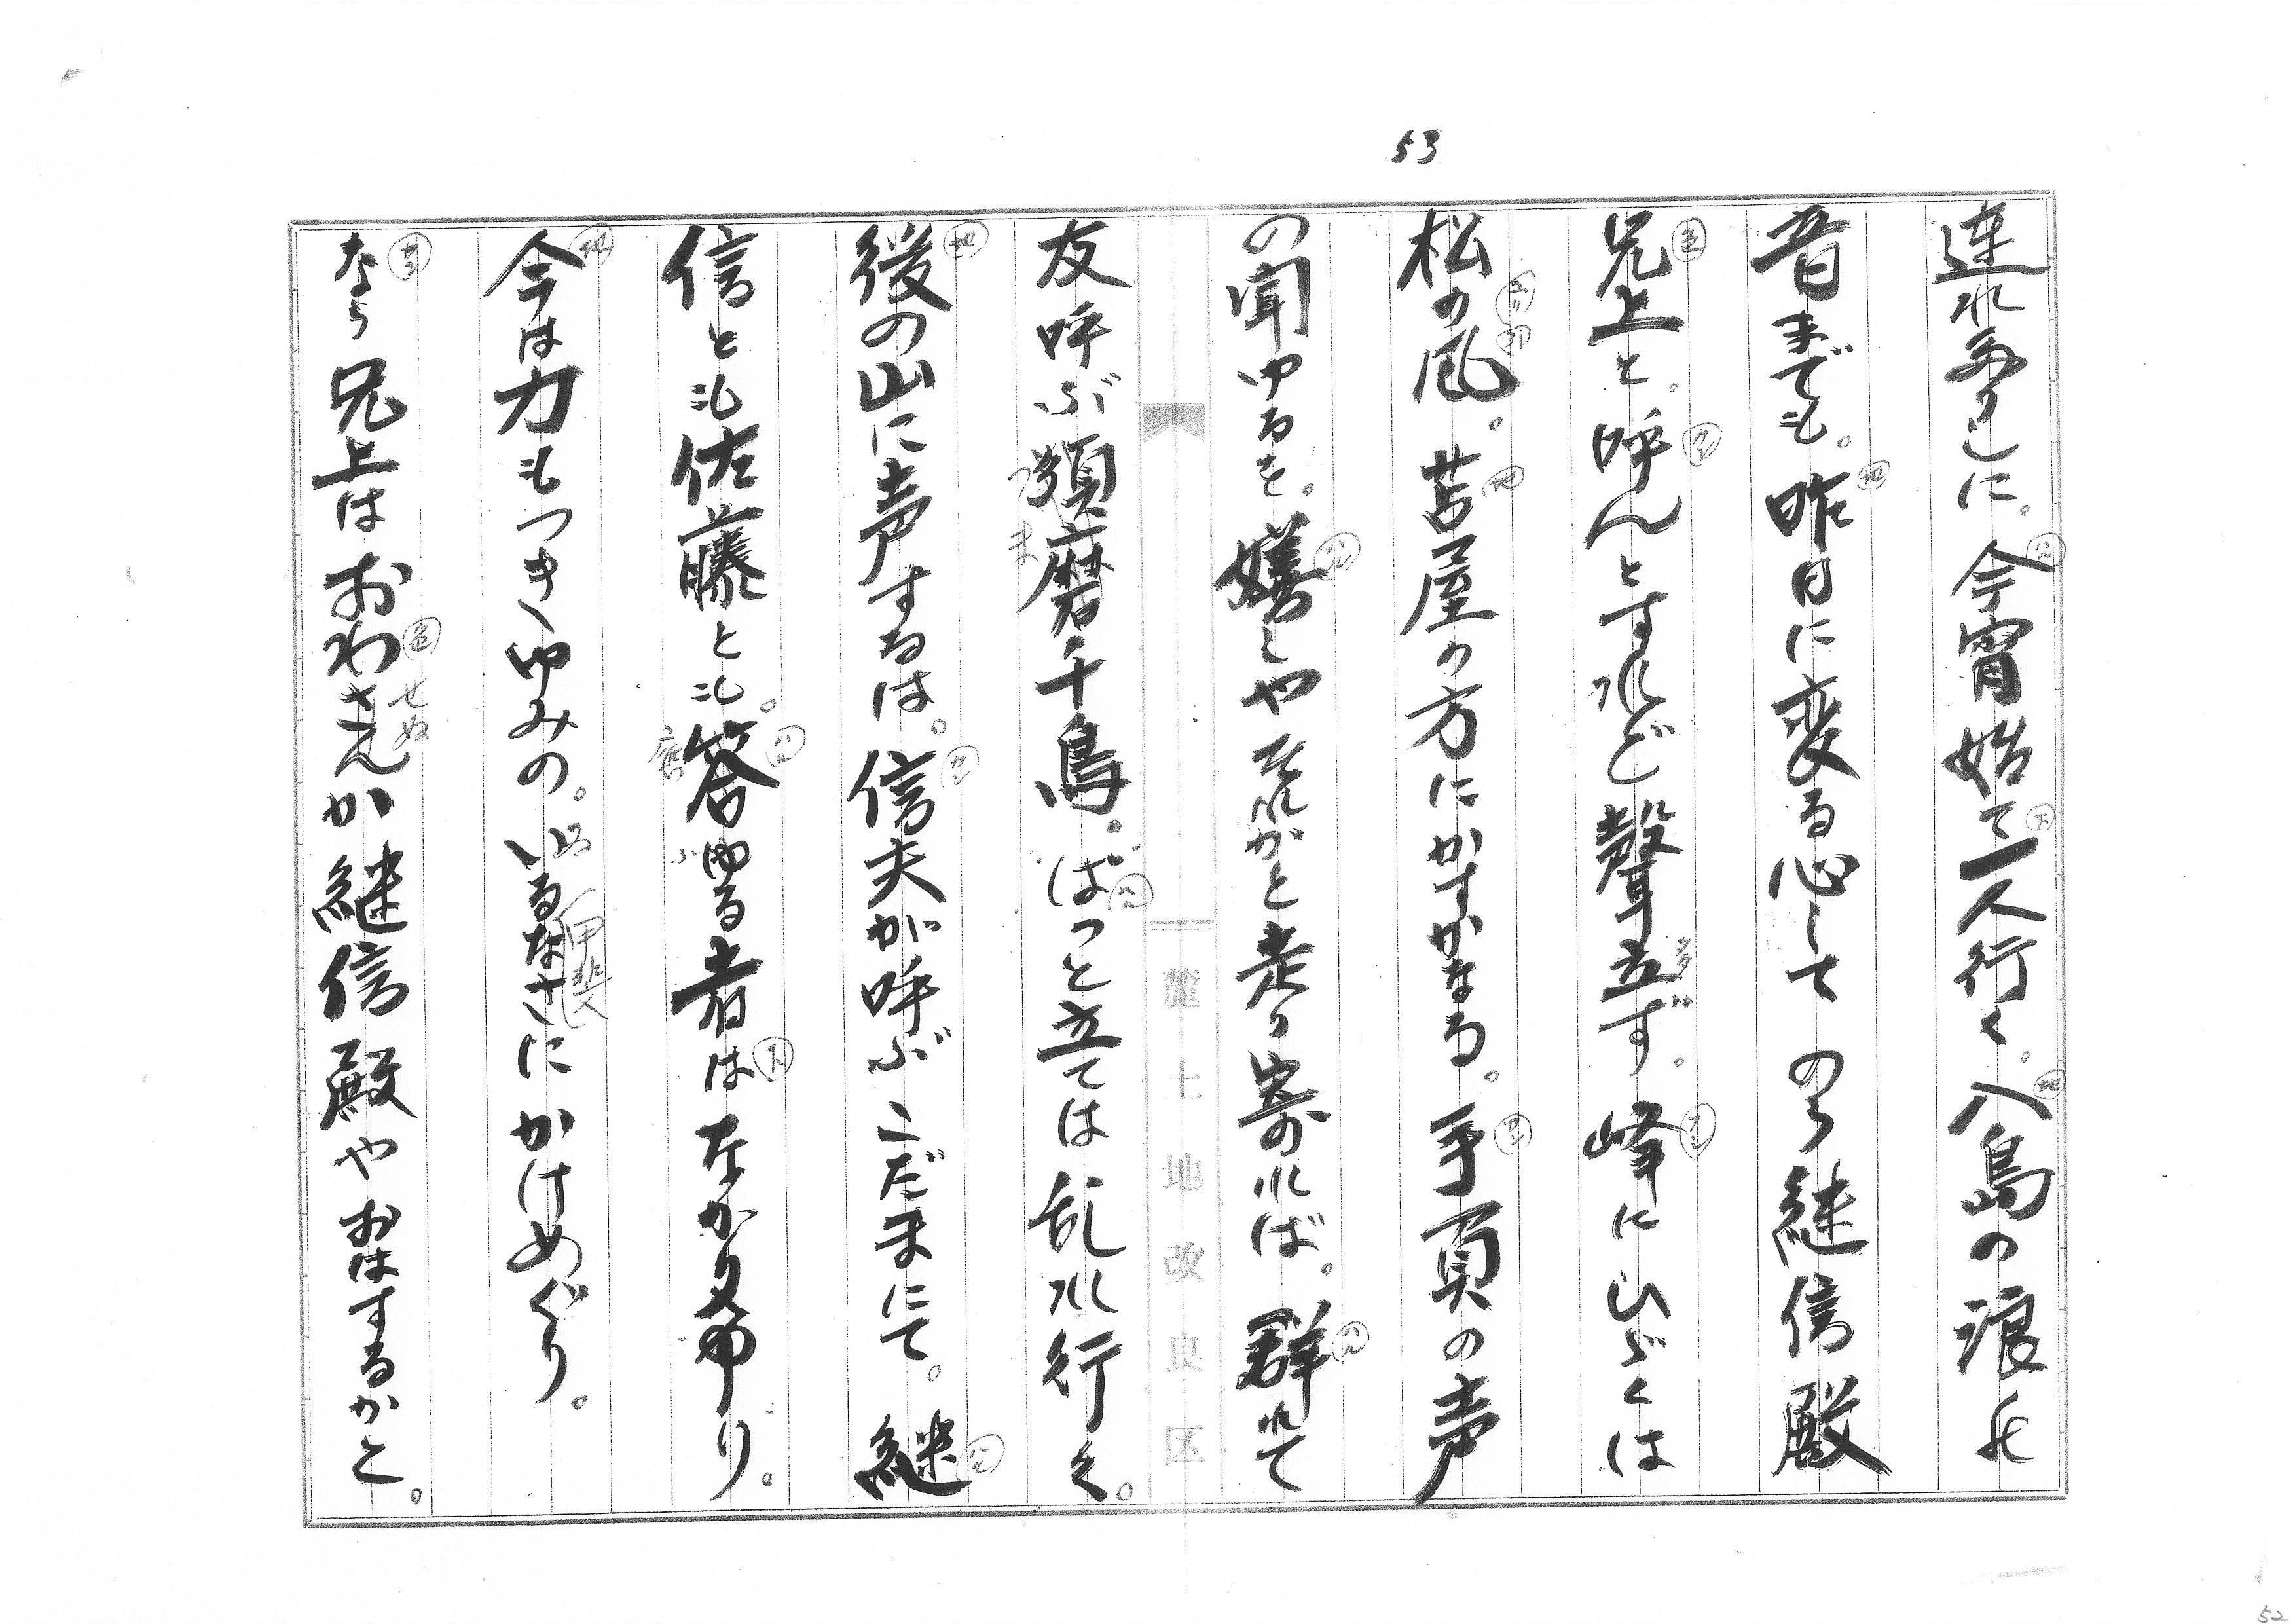 53
連れ系りしに。今宵始て一人行く。八島の浪の
音までも。昨日に変る心して のう継信殿
兄上と。呼んとすれど聲立ず。峰にひゞくは
松の風。苫屋の方にかすかなる。手負の声
の聞ゆるを。嬉しやそれがと走り寄れば。群れて
友呼ぶ須磨千鳥。ばっと立ては乱れ行く。
後の山に声するは。信夫が呼ぶこだまにて。継
信とも佐藤とも。答ゆる者はなかりけり。
今は力もつきゆみの。いるなさにかけめぐり。
なう兄上はおわさんか継信殿やおはするかと。
52